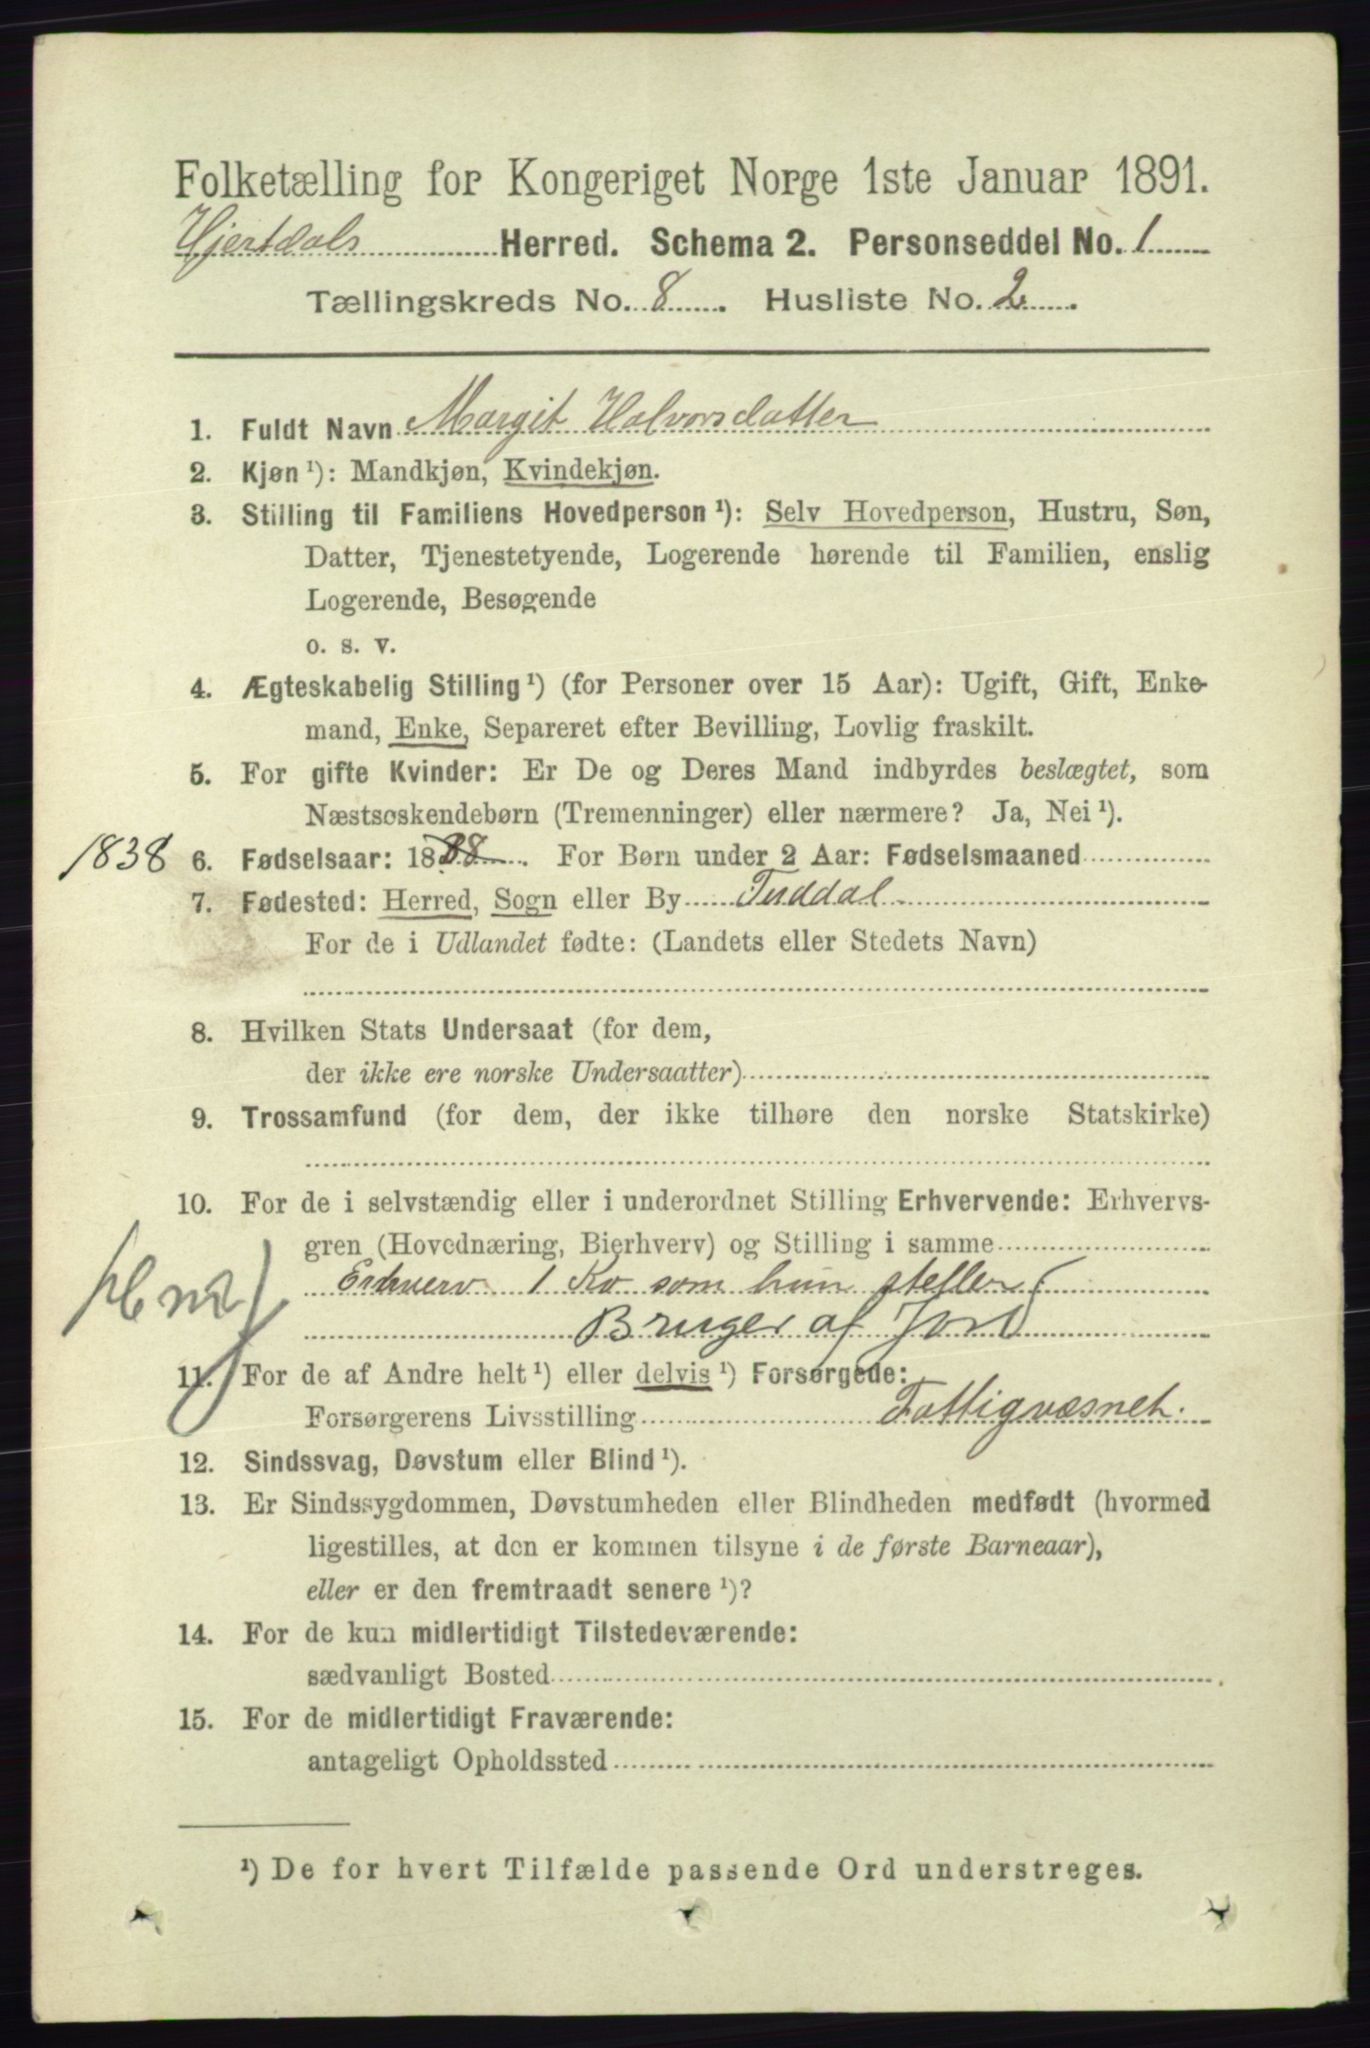 Folketælling for Kongeriget Norge 1ste Januar 1891.
Hjertdals Herred. Schema 2. Personseddel No. 1
Tællingskreds No. 8. Husliste No. 2.
1. Fuldt Navn Margit Halvorsdatter
2. Kjøn ¹): Mandkjøn, Kvindekjøn.
3. Stilling til Familiens Hovedperson ¹): Selv Hovedperson, Hustru, Søn,
Datter, Tjenestetyende, Logerende hørende til Familien, enslig
Logerende, Besøgende
o. s. v.
4. Ægteskabelig Stilling ¹) (for Personer over 15 Aar): Ugift, Gift, Enke-
mand, Enke, Separeret efter Bevilling, Lovlig fraskilt.
5. For gifte Kvinder: Er De og Deres Mand indbyrdes beslægtet, som
Næstsøskendebørn (Tremenninger) eller nærmere? Ja, Nei ¹).
1838 6. Fødselsaar: 1838. For Børn under 2 Aar: Fødselsmaaned
7. Fødested: Herred, Sogn eller By Tuddal
For de i Udlandet fødte: (Landets eller Stedets Navn)
8. Hvilken Stats Undersaat (for dem,
der ikke ere norske Undersaatter)
9. Trossamfund (for dem, der ikke tilhøre den norske Statskirke)
10. For de i selvstændig eller i underordnet Stilling Erhvervende: Erhvervs-
gren (Hovednæring, Bierhverv) og Stilling i samme
Erhverv 1 Ko som hun steller
Bruger af Jord
11. For de af Andre helt ¹) eller delvis ¹) Forsørgede:
Forsørgerens Livsstilling Fattigvæsnet.
12. Sindssvag, Døvstum eller Blind ¹).
13. Er Sindssygdommen, Døvstumheden eller Blindheden medfødt (hvormed
ligestilles, at den er kommen tilsyne i de første Barneaar),
eller er den fremtraadt senere ¹)?
14. For de kun midlertidigt Tilstedeværende:
sædvanligt Bosted
15. For de midlertidigt Fraværende:
antageligt Opholdssted
¹) De for hvert Tilfælde passende Ord understreges.